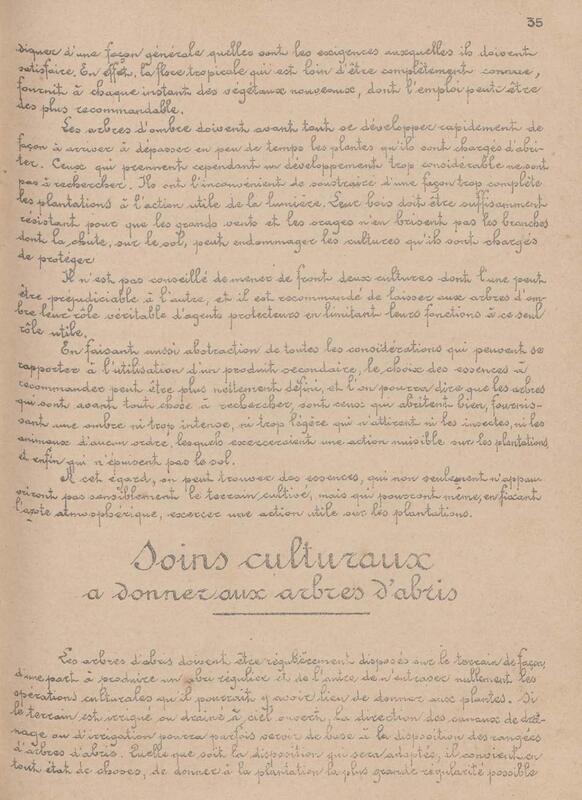 35
diquer d'une façon générale quelles sont les exigences auxquelles ils doivent
satisfaire. En effet, la flore tropicale qui est loin d'être complètement connue,
fournit à chaque instant des végétaux nouveaux, dont l'emploi peut être
des plus recommandable.
Les arbres d'ombre doivent avant tout se développer rapidement de
façon à arriver à dépasser en peu de temps les plantes qu'ils sont chargés d'abri-
ter. Ceux qui prennent cependant un développement trop considérable ne sont
pas à rechercher. Ils ont l'inconvénient de soustraire d'une façon trop complète
les plantations à l'action utile de la lumière. Leur bois doit être suffisamment
résistant pour que les grands vents et les orages n'en brisent pas les branches
dont la chute, sur le sol, peut endommager les cultures qu'ils sont chargés
de protéger
Il n'est pas conseillé de mener de front deux cultures dont l'une peut
être préjudiciable à l'autre, et il est recommandé de laisser aux arbres d'om-
bre leur rôle véritable d'agents protecteurs en limitant leurs fonctions à ce seul
rôle utile.
En faisant aussi abstraction de toutes les considérations qui peuvent se
rapporter à l'utilisation d'un produit secondaire, le choix des essences à
recommander peut être plus nettement défini, et l'on pourra dire que les arbres
qui sont avant tout chose à rechercher, sont ceux qui abritent bien, fournis-
sant une ombre ni trop intense, ni trop légère qui n'attirent ni les insectes, ni les
animaux d'aucun ordre, lesquels exerceraient une action nuisible sur les plantations,
et enfin qui n'épuisent pas le sol.
A cet égard, on peut trouver des essences, qui non seulement n'appau-
vriront pas sensiblement le terrain cultivé, mais qui pourront même, en fixant
l'azote atmosphérique, exercer une action utile sur les plantations.
Soins culturaux
a donner aux arbres d'abris
Les arbres d'abris doivent être régulièrement disposés sur le terrain de façon,
d'une part à produire un abri régulier et de l'autre de n'entraver nullement les
opérations culturales qu'il pourrait y avoir lieu de donner aux plantes. Si
le terrain est irrigué ou drainé à ciel ouvert, la direction des canaux de drai-
nage ou d'irrigation pourra parfois servir de base à la disposition des rangées
d'arbres d'abris. Quelle que soit la disposition qui sera adoptée, il convient en
tout état de choses, de donner à la plantation la plus grande régularité possible